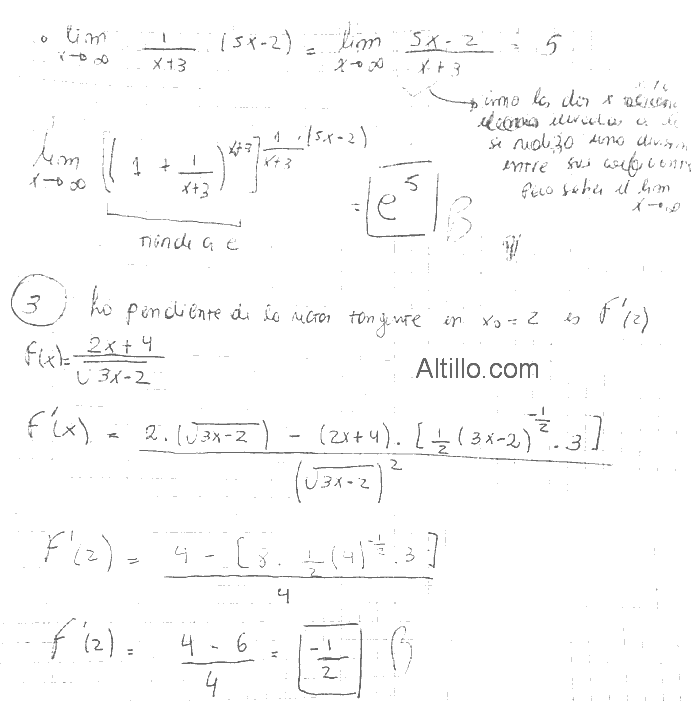 lim x→∞ 1/(x+3) · (5x-2) = lim x→∞ (5x-2)/(x+3) = 5
como las dos x
elevadas a
se realizo una division
entre sus
para saber el lim x→∞
lim x→∞ [(1 + 1/(x+3))^(x+3)]^(1/(x+3) · (5x-2)) = e^5 B
tiende a e
3 La pendiente de la recta tangente en x₀=2 es f'(2)
f(x)= (2x+4)/√(3x-2)
Altillo.com
f'(x) = (2·(√(3x-2)) - (2x+4)·[1/2 (3x-2)^(-1/2) · 3])/(√(3x-2))^2
f'(2) = (4 - [8 · 1/2 (4)^(-1/2) · 3])/4
f'(2) = (4 - 6)/4 = -1/2 B